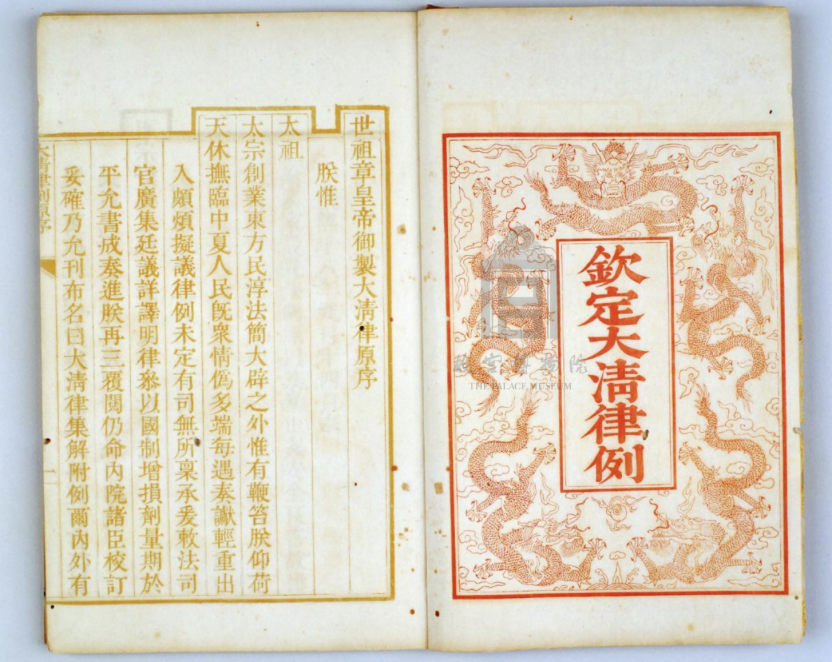 欽定大清律例
世祖章皇帝御製大清律原序
朕惟
太祖
太宗創業東方民淳法簡大辟之外惟有鞭笞朕仰荷
天休撫臨中夏人民旣衆情僞多端每遇奏讞輕重出
入頗煩擬議律例未定有司無所稟承爰敕法司
官廣集廷議詳譯明律叅以國制增損劑量期於
平允書成奏進朕再三覆閱仍命內院諸臣校訂
妥確乃允刊布名曰大淸律集解附例爾內外有
大清律例原序
一
故宮博物院
THE PALACE MUSEUM